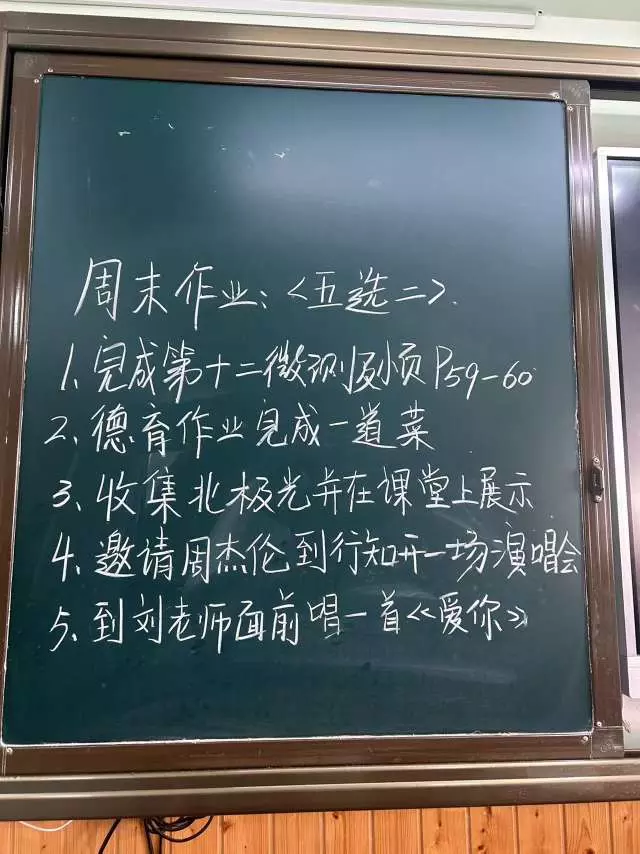 周末作业:<五选二>.
1、完成第十二微测及小页P59-60
2、德育作业完成一道菜
3、收集北极光并在课堂上展示
4、邀请周杰伦到行知开一场演唱会
5、到刘老师面前唱一首《爱你》